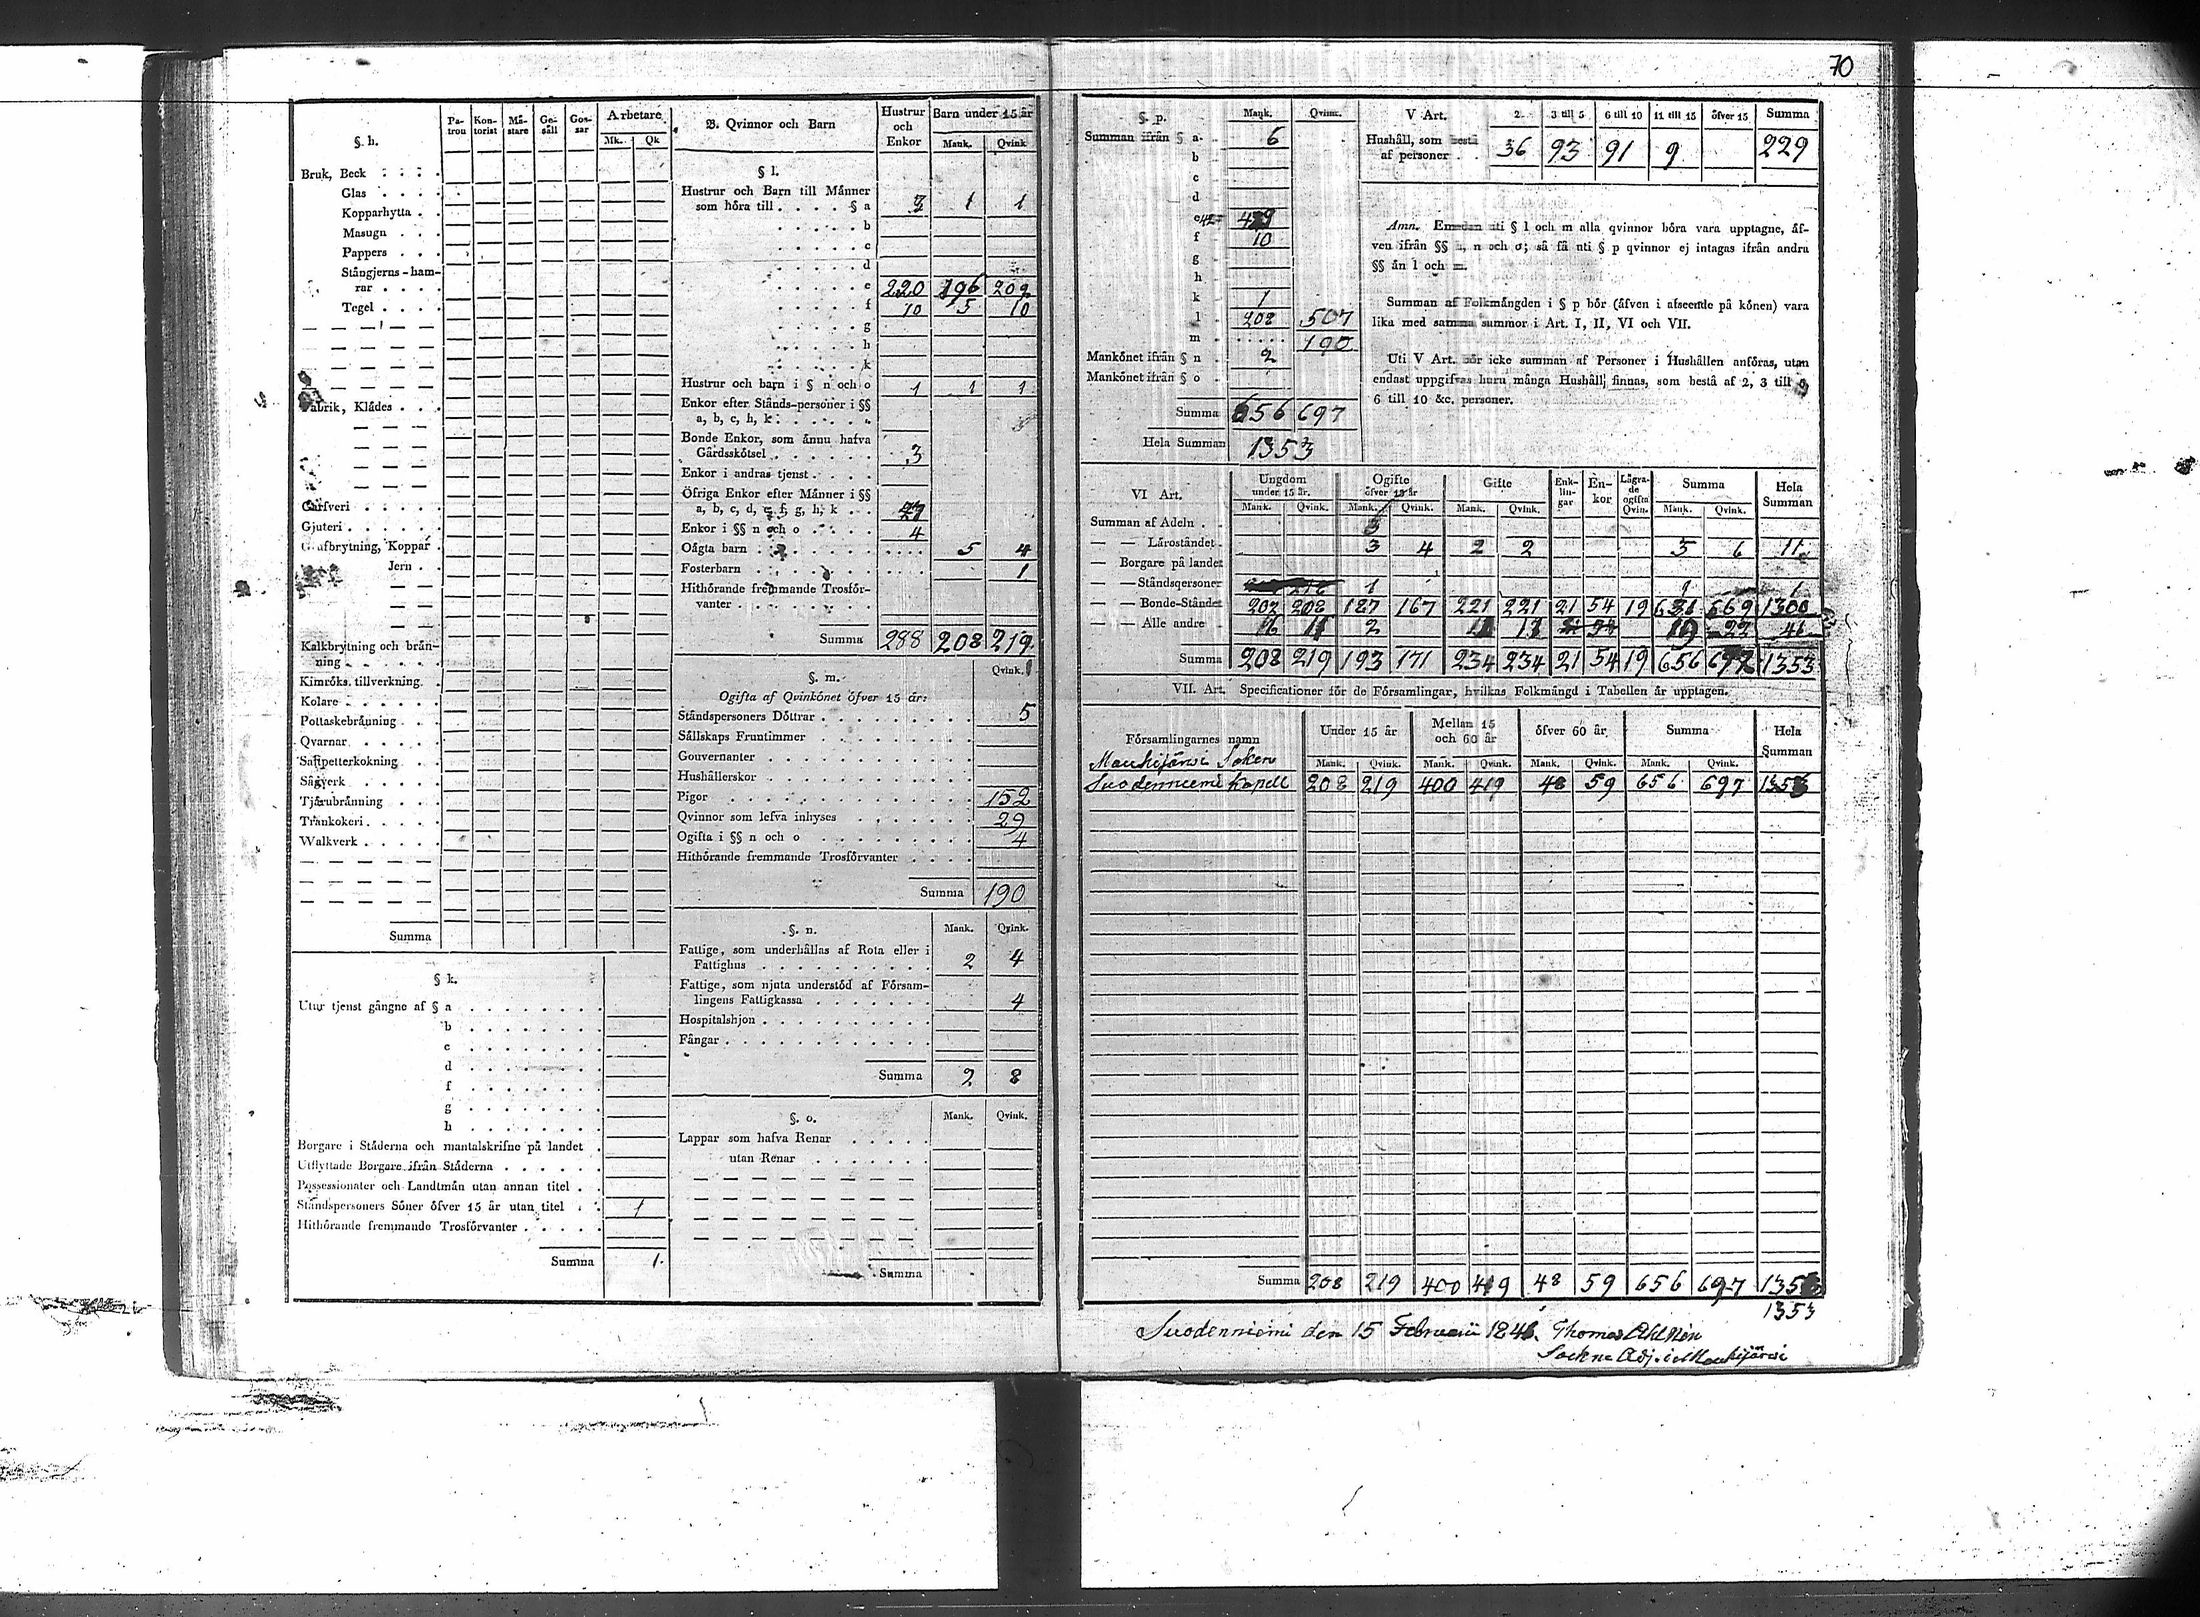 70
§. h.
Pa-
tron
Kon-
torist
Mä-
stare
Ge-
säll
Gos-
sar
Arbetare
Mk. Qk
Bruk, Beck
Glas
Kopparhytta
Masugn
Pappers
Stångjerns-ham-
rar
Tegel
Fabrik, Klädes
Garfveri
Gjuteri
Grufbrytning, Koppar
Jern
Kalkbrytning och brän-
ning
Kimröks tillverkning
Kolare
Pottaskebränning
Qvarnar
Saltpetterkokning
Sågverk
Tjärubränning
Trankokeri
Walkverk
Summa
§ k.
Utur tjenst gångne af § a
b
c
d
f
g
h
Borgare i Städerna och mantalskrifne på landet
Utflyttade Borgare ifrån Städerna
Possessionater och Landtmän utan annan titel
Ståndspersoners Söner öfver 15 år utan titel 1
Hithörande fremmande Trosförvanter
Summa 1.
B. Qvinnor och Barn
Hustrur
och
Enkor
Barn under 15 år
Mank. Qvink
§ l.
Hustrur och Barn till Männer
som höra till § a 1 1
b
c
d
e 220 196 202
f 10 5 10
g
h
k
Hustrur och barn i § n och o 1 1 1
Enkor efter Stånds-personer i §§
a, b, c, h, k
Bonde Enkor, som ännu hafva
Gårdsskötsel 3
Enkor i andras tjenst
Öfriga Enkor efter Männer i §§
a, b, c, d, e, f, g, h, k
Enkor i §§ n och o 4
Oägta barn 5 4
Fosterbarn 1
Hithörande fremmande Trosför-
vanter
Summa 288 208 219
§. m. Qvink.
Ogifta af Qvinkönet öfver 15 år:
Ståndspersoners Döttrar 5
Sällskaps Fruntimmer
Gouvernanter
Hushållerskor
Pigor 152
Qvinnor som lefva inhyses 29
Ogifta i §§ n och o 4
Hithörande fremmande Trosförvanter
Summa 190
§. n. Mank. Qvink.
Fattige, som underhållas af Rota eller i
Fattighus 2 4
Fattige, som njuta understöd af Försam-
lingens Fattigkassa 4
Hospitalshjon
Fångar
Summa 2 8
§. o. Mank. Qvink.
Lappar som hafva Renar
utan Renar
Summa
§. p. Mank. Qvink.
Summan ifrån § a 6
b
c
d
e
f 10
g
h
k 1
l 208 507
m 190
Mankönet ifrån § n 2
Mankönet ifrån § o
Summa 656 697
Hela Summan 1353
V Art. 2 3 till 5 6 till 10 11 till 15 öfver 15 Summa
Hushåll, som bestå
af personer 36 93 91 9 229
Anm. Emedan uti § l och m alla qvinnor böra vara upptagne, äf-
ven ifrån §§ h, n och o; så få uti § p qvinnor ej intagas ifrån andra
§§ än l och m.
Summan af Folkmängden i § p bör (äfven i afseende på könen) vara
lika med samma summor i Art. I, II, VI och VII.
Uti V Art. bör icke summan af Personer i Hushållen anföras, utan
endast uppgifvas huru många Hushåll finnas, som bestå af 2, 3 till 5,
6 till 10 &c. personer.
VI Art.
Ungdom
under 15 år.
Ogifte
öfver 15 år
Gifte
Enk-
lin-
gar
En-
kor
Lägra-
de
ogifta
Qvin.
Summa
Hela
Summan
Mank. Qvink. Mank. Qvink. Mank. Qvink. Mank. Qvink.
Summan af Adeln
— — Läroståndet 3 4 2 2 5 6 11
— Borgare på landet
— — Ståndspersoner 1 1 1
— — Bonde-Ståndet 202 208 187 167 221 221 21 54 19 669 1300
— — Alle andre 2
Summa 208 219 193 171 234 234 21 54 19 656 697 1353
VII. Art. Specificationer för de Församlingar, hvilkas Folkmängd i Tabellen är upptagen.
Församlingarnes namn Under 15 år Mellan 15
och 60 år öfver 60 år Summa Hela
Summan
Mank. Qvink. Mank. Qvink. Mank. Qvink. Mank. Qvink.
Mouhijärvi Soken
Suodenniemi Kapell 208 219 400 419 48 59 656 697 1353
Summa 208 219 400 419 48 59 656 697 1353
1353
Suodenniemi den 15 Februarii Thomas Ahlstén
Sockne Adj. i Mouhijärvi